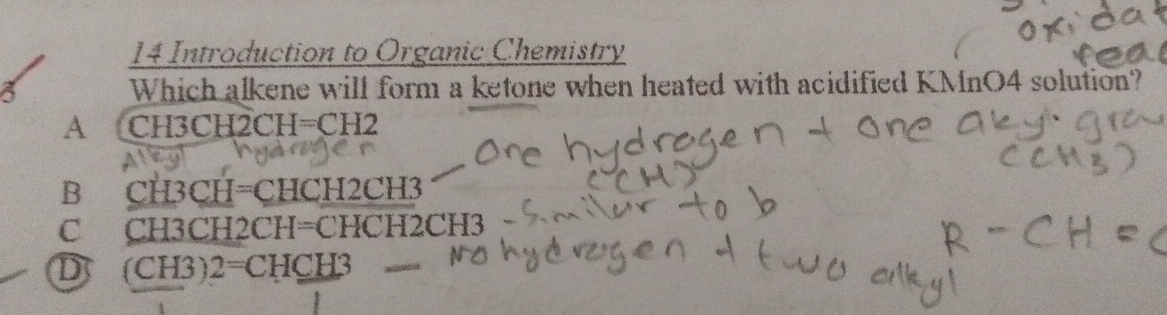 oxidat
reac
14 Introduction to Organic Chemistry
Which alkene will form a ketone when heated with acidified KMnO4 solution?
A CH3CH2CH=CH2
Alkyl hydrogen
one hydrogen + one alkyl
(CH3)
(CH)
B CH3CH=CHCH2CH3
C CH3CH2CH=CHCH2CH3 - Similar to b
D (CH3)2=CHCH3 — No hydrogen + two alkyl
R - CH =